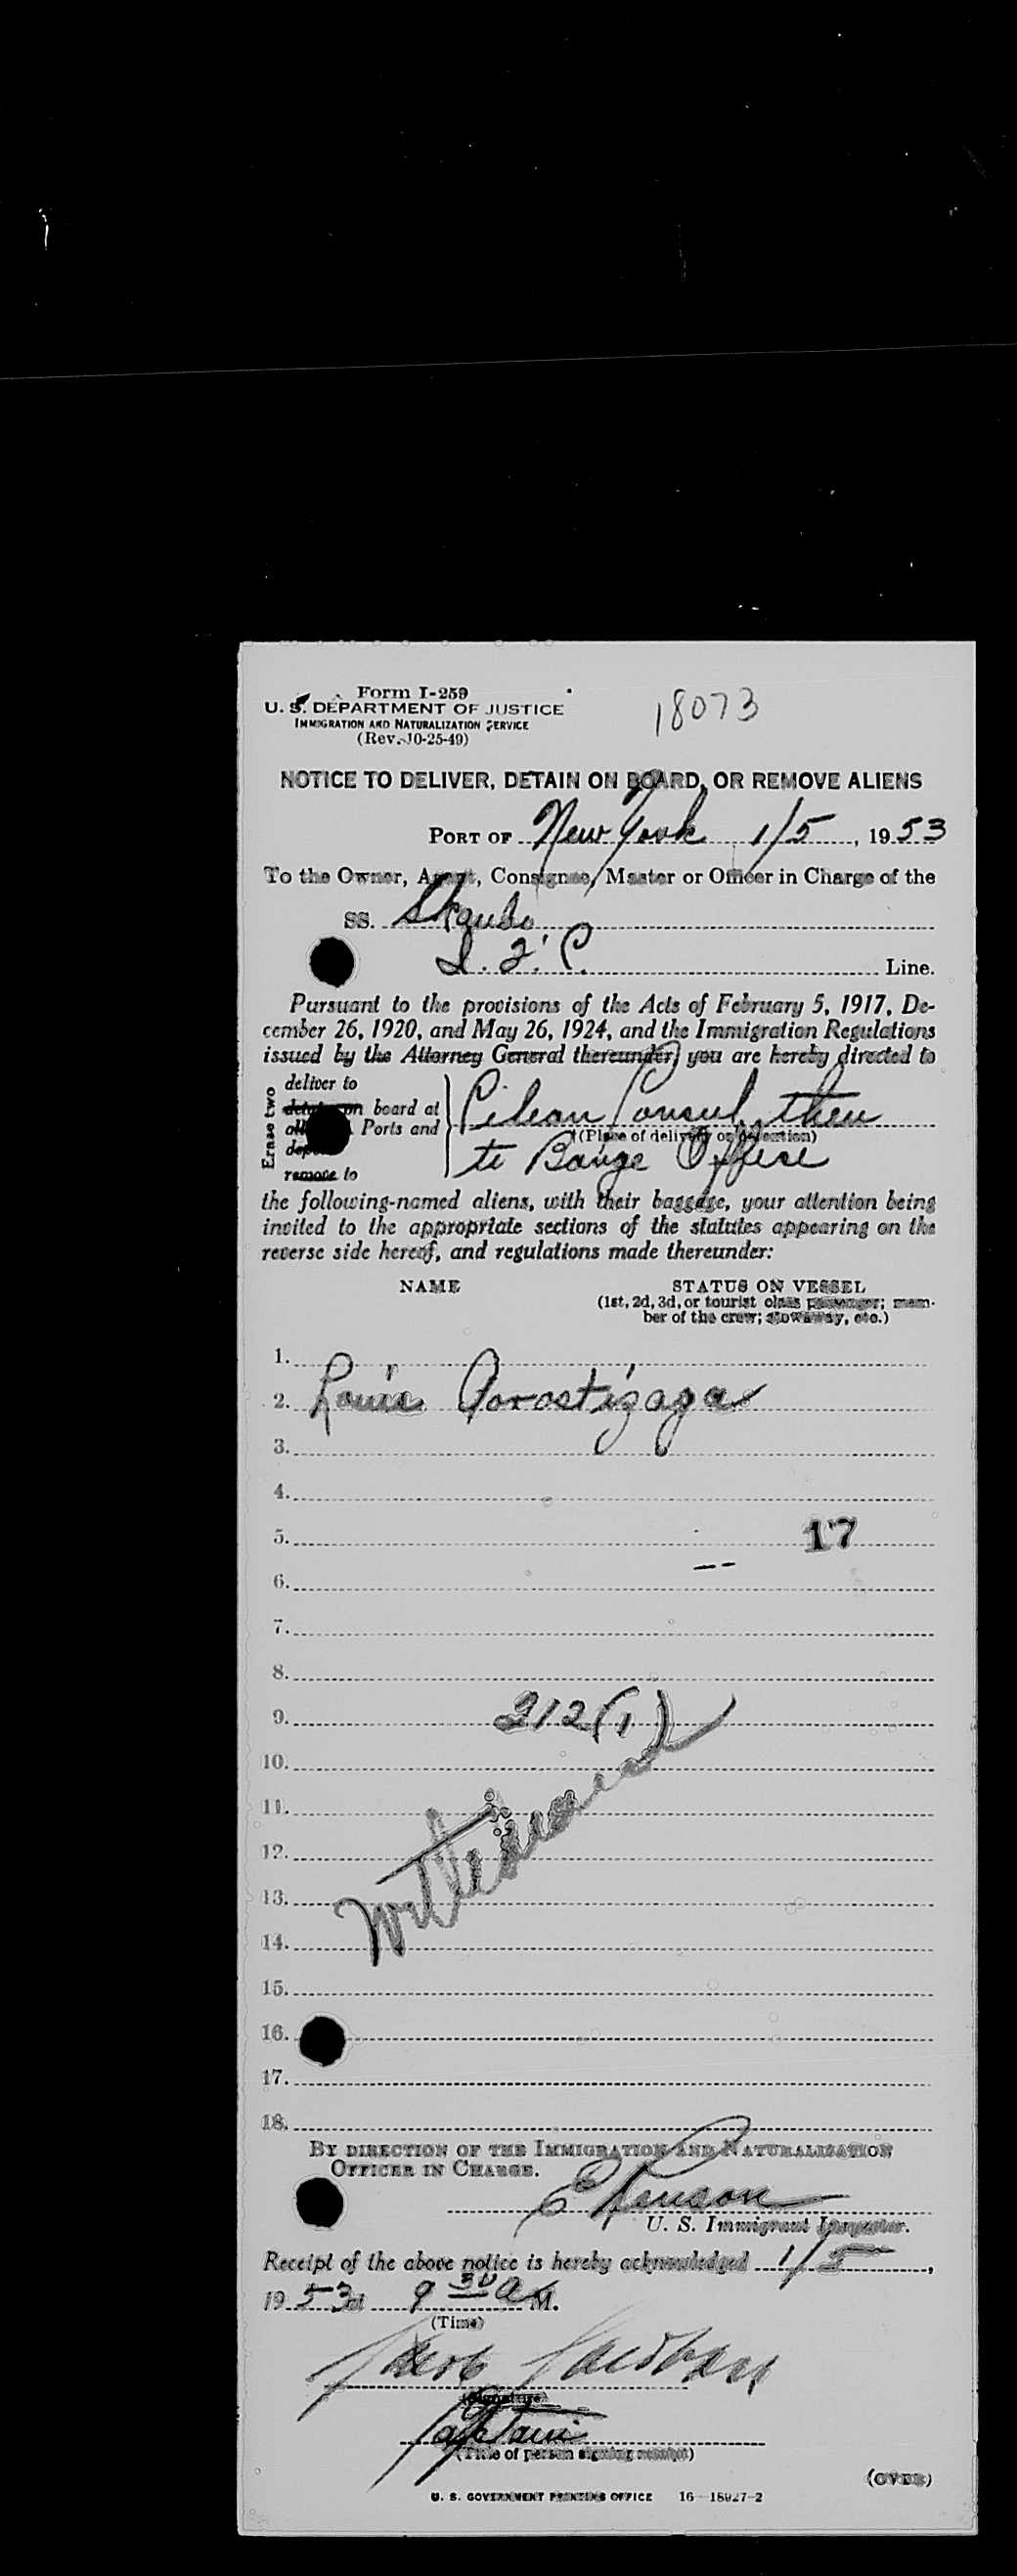 Form I-259
18073
U. S. DEPARTMENT OF JUSTICE
IMMIGRATION AND NATURALIZATION SERVICE
(Rev. 10-25-49)
NOTICE TO DELIVER, DETAIN ON BOARD, OR REMOVE ALIENS
PORT OF New York 1/5, 1953
To the Owner, Agent, Consignee, Master or Officer in Charge of the
SS.
Line.
Pursuant to the provisions of the Acts of February 5, 1917, De-
cember 26, 1920, and May 26, 1924, and the Immigration Regulations
issued by the Attorney General thereunder, you are hereby directed to
Erase two
deliver to
detain on board at
Ports and
remove to
Consul, then
(Place of delivery or detention)
to Barge Office
the following-named aliens, with their baggage, your attention being
invited to the appropriate sections of the statutes appearing on the
reverse side hereof, and regulations made thereunder:
NAME STATUS ON VESSEL
(1st, 2d, 3d, or tourist class passenger; mem-
ber of the crew; stowaway, etc.)
1.
2. Louis
3.
4.
5. 17
6.
7.
8.
9. 212(1)
10.
11.
12.
13.
14.
15.
16.
17.
18.
BY DIRECTION OF THE IMMIGRATION AND NATURALIZATION
OFFICER IN CHARGE.
U. S. Immigrant Inspector.
Receipt of the above notice is hereby acknowledged 1/5,
1953 at 9 30 A M.
(Time)
(Signature)
Captain
(Title of person signing receipt)
(OVER)
U. S. GOVERNMENT PRINTING OFFICE 16—18927-2